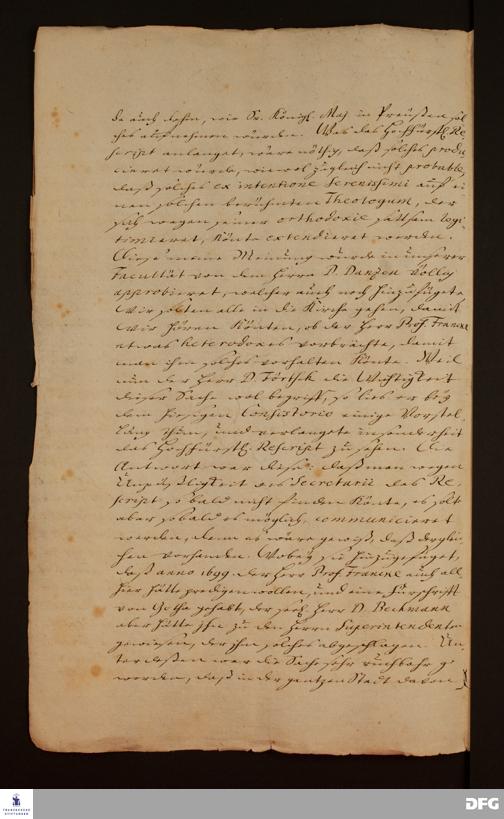 da auch dahin, wie Sr. Königl. Maj. in Preußen sol
ches aufnehmen würden. Was das Hochfürstl. Re
script anlanget, wäre nöthig, daß solches produ
cieret würde, wie wol zugleich nicht probable,
daß solches ex intentione Serenissimi auf ei
nen solchen berühmten Theologum, der
sich wegen seiner orthodoxie sattsam legi
timieret, könte extendieret werden.
Diese meine Meinung wurde in unserer
Facultät von dem Herrn D. Danzen völlig
approbieret, welcher auch noch hinzufügete,
wir solten alle in die Kirche gehen, damit
wir hören könten, ob der Herr Prof. Francke
etwas heterodoxes vorbrächte, damit
man ihm solches vorhalten könte. Weil
nun der Herr D. Förtsch die Wichtigkeit
dieser Sache wol begriff, so lies er bey
dem hiesigen Consistorio einige Vorstel
lung thun, und verlangete insonderheit
das Hochfürstl. Rescript zu sehen. Die
Antwort war diese: daß man wegen
Unpäßligkeit des Secretarii das Re
script so bald nicht finden könte, es solt
aber so bald es möglich, communicieret
werden, denn es wäre gewiß, daß derglei
chen vorhanden. Wobey sie hinzugefüget,
daß anno 1699. der Herr Prof. Francke auch all
hier hätte predigen wollen, und eine Fürschrift
von Gotha gehabt, der seel. Herr D. Bechmann
aber hätte ihn zu den Herrn Superintendenten
gewiesen, der ihm solches abgeschlagen. Un
ter deßen war die Sache sehr ruchbahr ge
worden, daß in der gantzen Stadt davon
FRANCKESCHE STIFTUNGEN
DFG